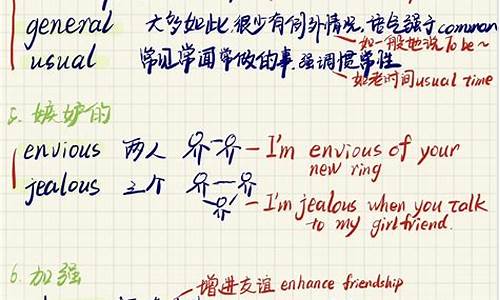 general 大多如此,很少有例外情况,语气强于common
如一般地说 To be ~
usual 常见常闻常做的事,强调惯常性
如老时间 usual time
5. 嫉妒的
envious 两人 — I'm envious of your
new ring
jealous 三个
I'm jealous when you talk
to my girlfriend.
6. 加强
增进友谊 enhance friendship